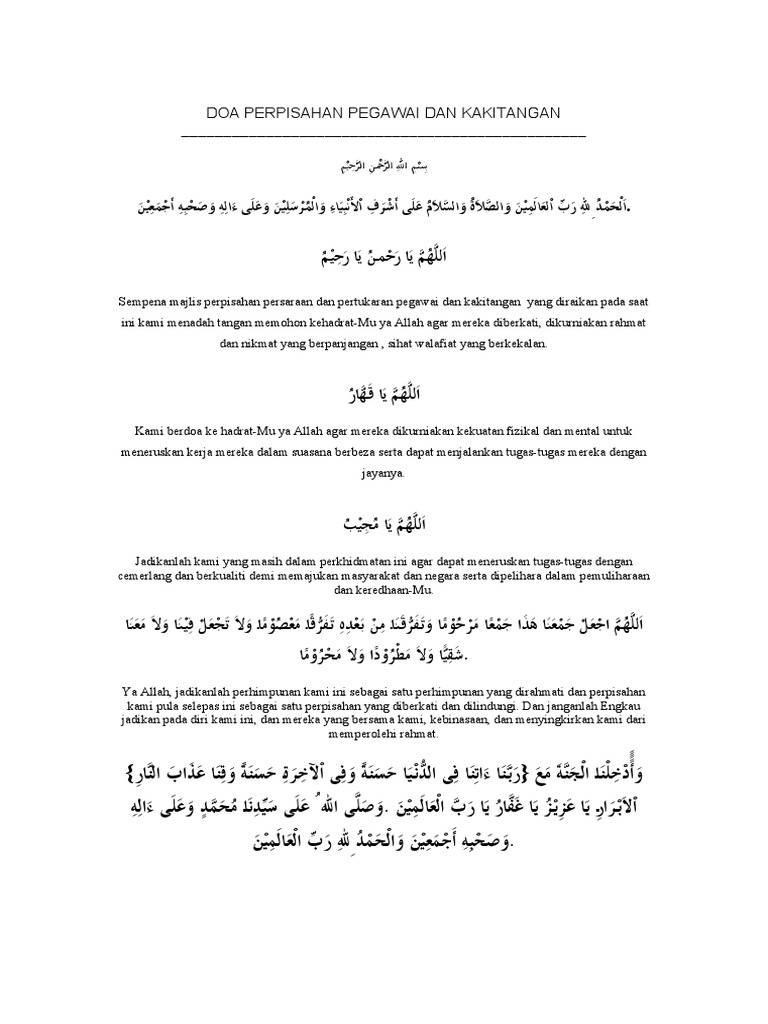 DOA PERPISAHAN PEGAWAI DAN KAKITANGAN
بِسْمِ اللهِ الرَّحْمنِ الرَّحِيْمِ
اَلْحَمْدُ ِللهِ رَبِّ اْلعَالَمِيْنَ وَالصَّلاَةُ وَالسَّلاَمُ عَلَى أَشْرَفِ اْلأَنْبِيَاءِ وَالْمُرْسَلِيْنَ وَعَلَى ءَالِهِ وَصَحْبِهِ أَجْمَعِيْنَ.
اَللَّهُمَّ يَا رَحْمنُ يَا رَحِيْمُ
Sempena majlis perpisahan persaraan dan pertukaran pegawai dan kakitangan yang diraikan pada saat
ini kami menadah tangan memohon kehadrat-Mu ya Allah agar mereka diberkati, dikurniakan rahmat
dan nikmat yang berpanjangan , sihat walafiat yang berkekalan.
اَللَّهُمَّ يَا قَهَّارُ
Kami berdoa ke hadrat-Mu ya Allah agar mereka dikurniakan kekuatan fizikal dan mental untuk
meneruskan kerja mereka dalam suasana berbeza serta dapat menjalankan tugas-tugas mereka dengan
jayanya.
اَللَّهُمَّ يَا مُجِيْبُ
Jadikanlah kami yang masih dalam perkhidmatan ini agar dapat meneruskan tugas-tugas dengan
cemerlang dan berkualiti demi memajukan masyarakat dan negara serta dipelihara dalam pemuliharaan
dan keredhaan-Mu.
اَللَّهُمَّ اجْعَلْ جَمْعَنَا هَذَا جَمْعًا مَرْحُوْمًا وَتَفَرُّقَنَا مِنْ بَعْدِهِ تَفَرُّقًا مَعْصُوْمًا وَلاَ تَجْعَلْ فِيْنَا وَلاَ مَعَنَا
شَقِيًّا وَلاَ مَطْرُوْدًا وَلاَ مَحْرُوْمًا.
Ya Allah, jadikanlah perhimpunan kami ini sebagai satu perhimpunan yang dirahmati dan perpisahan
kami pula selepas ini sebagai satu perpisahan yang diberkati dan dilindungi. Dan janganlah Engkau
jadikan pada diri kami ini, dan mereka yang bersama kami, kebinasaan, dan menyingkirkan kami dari
memperolehi rahmat.
وَأَدْخِلْنَا الْجَنَّةَ مَعَ {رَبَّنَا ءَاتِنَا فِى الدُّنْيَا حَسَنَةً وَفِى اْلآخِرَةِ حَسَنَةً وَقِنَا عَذَابَ النَّارِ}
اْلاَبْرَارِ يَا عَزِيْزُ يَا غَفَّارُ يَا رَبَّ الْعَالَمِيْنَ. وَصَلَّى اللهُ عَلَى سَيِّدِنَا مُحَمَّدٍ وَعَلَى ءَالِهِ
وَصَحْبِهِ أَجْمَعِيْنَ وَالْحَمْدُ ِللهِ رَبِّ الْعَالَمِيْنَ.